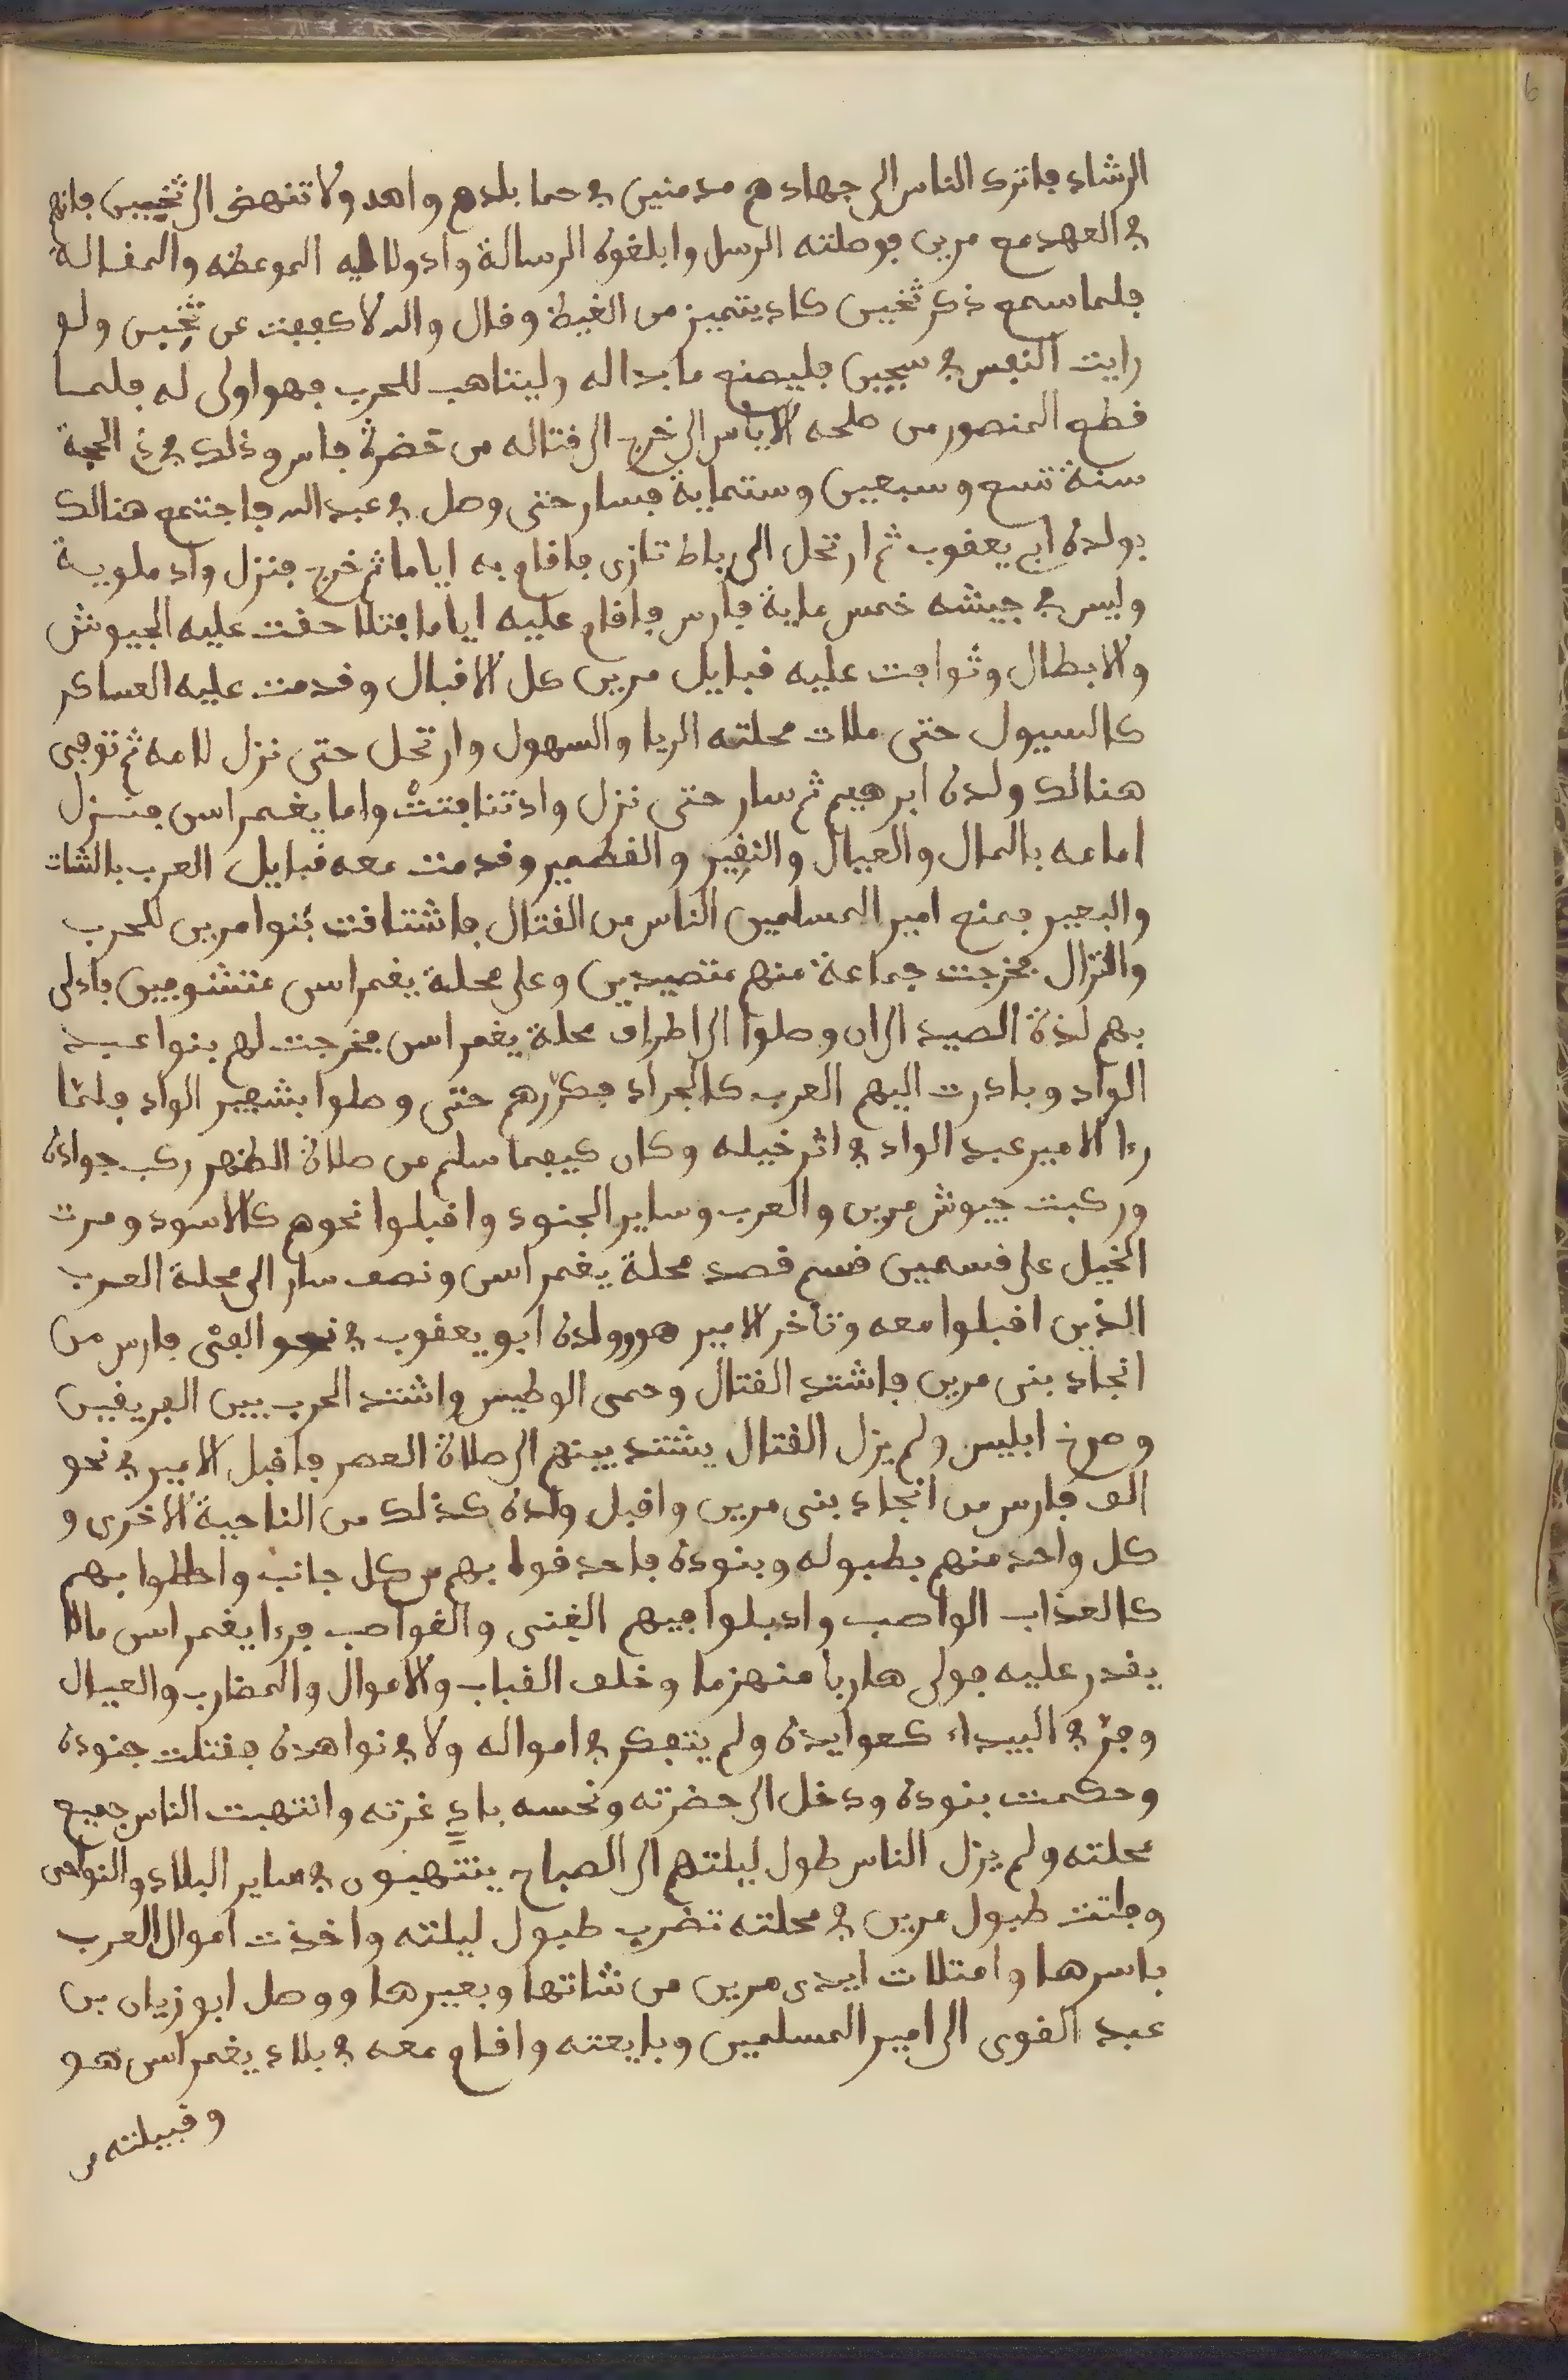 الرشاد فاترك الناس الى جهادهم مدمنين في حما بلدهم واهد ولا تنهض الى تجيين فانهم
في العهد مع مرين فوصلته الرسل وابلغوه الرسالة وادوا اليه الموعظه والمفالة
فلما سمع ذكر تجيين كاد يتميز من الغيظ وفال والله لا كففت عن تجين ولو
رايت النفس في سجين فليصنع ما بدا له وليتاهب للحرب فهو اولى له فلما
فطع المنصور من صلحه الاياس الى خرج الى فتاله من حضرة فاس وذلك في ذي الحجة
سنة تسع وسبعين وستماية فسار حتى وصل في عبد الله فاجتمع هنالك
بولده ابي يعفوب ثم ارتحل الى رباط تازى فافام به اياما ثم خرج فنزل واد ملوية
وليس في جيشه خمس ماية فارس فافام عليه اياما فتلاحفت عليه الجيوش
والابطال وتوافت عليه فبايل مرين كل الافبال وفدمت عليه العساكر
كالسيول حتى ملات محلته الربا والسهول وارتحل حتى نزل لامه ثم توفي
هنالك ولده ابرهيم ثم سار حتى نزل واد تنافتت واما يغمراسن فنزل
امامه بالمال والعيال والنفير والفطمير وفدمت معه فبايل العرب بالشات
والبعير فمنع امير المسلمين الناس من الفتال فاشتافت بنوا مرين للحرب
والنزال فخرجت جماعة منهم متصيدين وعلى محلة يغمراسن متشوفين فادلى
بهم لذة الصيد الى ان وصلوا الى اطراف محلة يغمراسن فخرجت لهم بنوا عبد
الواد وبادرت اليهم العرب كالجراد فكررهم حتى وصلوا بشفير الواد فلما
رءا الامير عبد الواد في اثر خيله وكان كيفما سلم من صلاة الظهر ركب جواده
وركبت جيوش مرين والعرب وساير الجنود وافبلوا نحوهم كالاسود ومرت
الخيل على فسمين فسم فصد محلة يغمراسن ونصف سار الى محلة العرب
الذين افبلوا معه وتاخر الامير هو وولده ابو يعفوب في نحو الفي فارس من
انجاد بنى مرين فاشتد الفتال وحمى الوطيس واشتد الحرب بين الفريفين
وصرخ ابليس ولم يزل الفتال يشتد بينهم الى صلاة العصر فافبل الامير في نحو
الف فارس من انجاد بنى مرين وافبل ولده كذلك من الناحية الاخرى و
كل واحد منهم بطبوله وبنوده فاحدفوا بهم من كل جانب واحاطوا بهم
كالعذاب الواصب وادبلوا فيهم الفنى والفواصب فرءا يغمراسن مالا
يفدر عليه فولى هاربا منهزما وخلف الفباب والاموال والمضارب والعيال
وفر في البيداء كعوايده ولم يتفكر في امواله ولا في نواهده ففتلت جنوده
وحكمت بنوده ودخل الى حضرته ونحسه باد غرته وانتهبت الناس جميع
محلته ولم يزل الناس طول ليلتهم الى الصباح ينتهبون في ساير البلاد والنواحى
وباتت طبول مرين في محلته تضرب طبول ليلته واخذت اموال العرب
باسرها وامتلات ايدى مرين من شاتها وبعيرها ووصل ابو زيان بن
عبد الفوى الى امير المسلمين وبايعته وافام معه في بلاد يغمراسن هو
وفبيلته